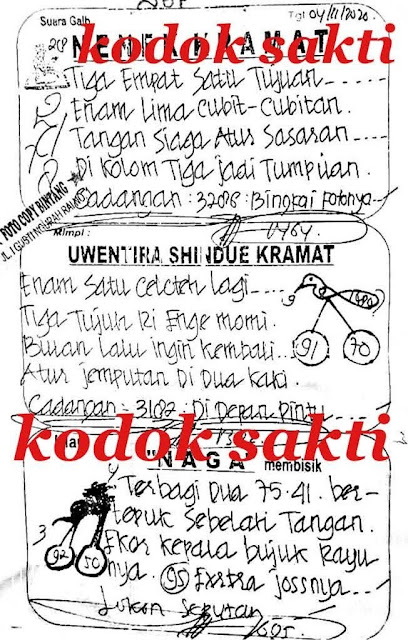 Suara Gaib
Tgl 04/11/2020
208
NENEK KRAMAT
kodok sakti
Tiga Empat Satu Tujuan-----
Enam Lima Cubit-Cubitan.
Tangan Siaga Atur Sasaran
Di Kolom Tiga jadi Tumpuan.
Cadangan : 3208 : Bingkai Fotonya
FOTO COPY BINTANG
JL. I GUSTI NGURAH RAI
Mimpi :
0764
UWENTIRA SHINDUE KRAMAT
Enam Satu Celoteh lagi----
Tiga Tujuh Ri Enge momi.
Bulan lalu ingin kembali..
Atur jemputan Di Dua kaki.
Cadangan : 3182 : Di Depan Pintu
9
91
70
kodok sakti
"NAGA" membisik
Terbagi Dua 75.41. ber-
tepuk Sebelah Tangan.
Ekor kepala bujuk Rayu
nya. 95 Exstra jossnya---
3
92
50